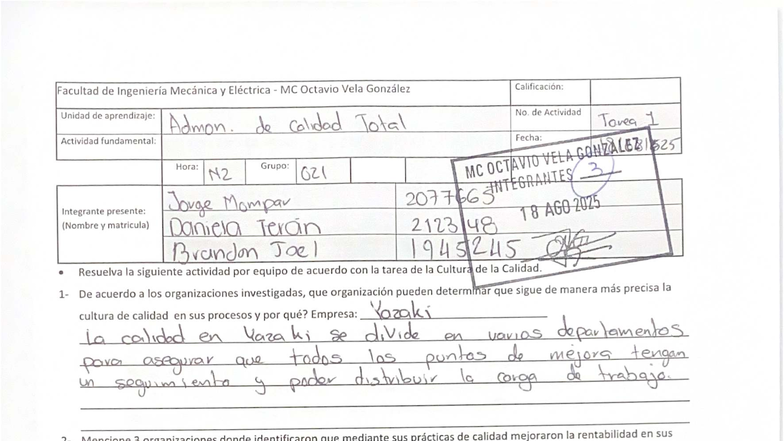 Facultad de Ingeniería Mecánica y Eléctrica - MC Octavio Vela González
Calificación:
Unidad de aprendizaje: Admon. de calidad Total
No. de Actividad Tarea 1
Actividad fundamental:
Fecha:
Hora: N2 Grupo: 021
MC OCTAVIO VELA GONZALEZ
INTEGRANTES 3
18 AGO 2025
Integrante presente:
(Nombre y matricula)
Jorge Mompar 2077665
Daniela Terán 2123148
Brandon Joel 1945245
• Resuelva la siguiente actividad por equipo de acuerdo con la tarea de la Cultura de la Calidad.
1- De acuerdo a los organizaciones investigadas, que organización pueden determinar que sigue de manera más precisa la
cultura de calidad en sus procesos y por qué? Empresa: Yazaki
La calidad en Yazaki se divide en varios departamentos
para asegurar que todos los puntos de mejora tengan
un seguimiento y poder distribuir la carga de trabajo.
2- Mencione 3 organizaciones donde identificaron que mediante sus prácticas de calidad mejoraron la rentabilidad en sus